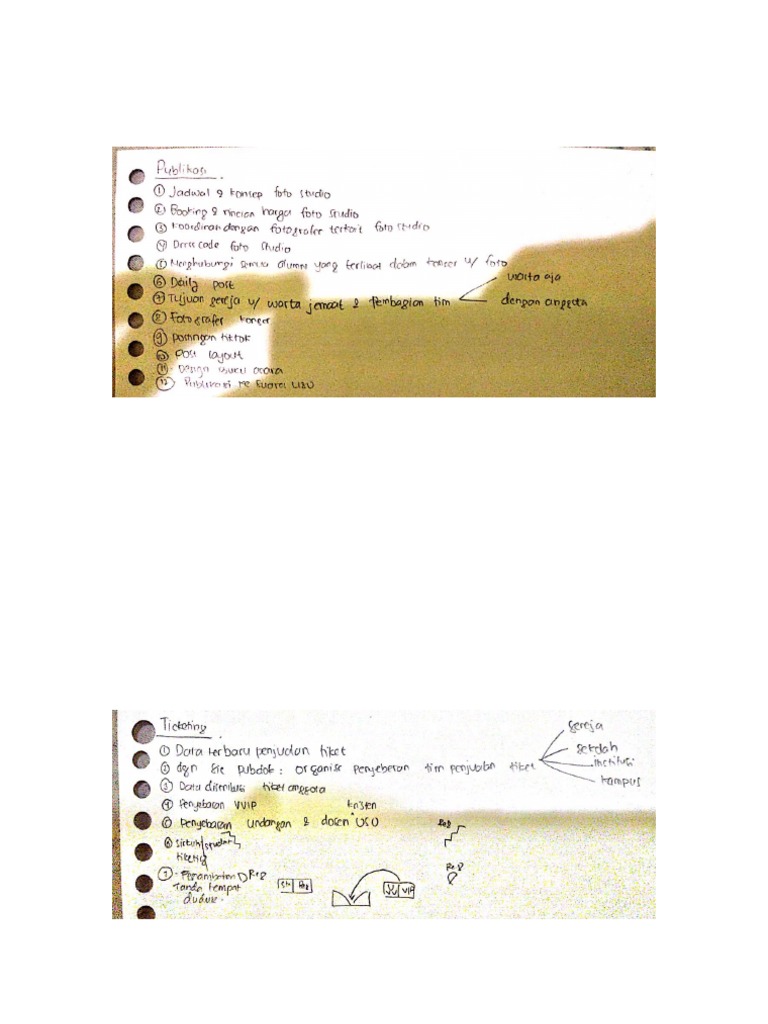 Publikasi
① Jadwal & konsep foto studio
② Booking & rincian harga foto studio
③ Koordinasi dengan fotografer terkait foto studio
④ Dress code foto studio
⑤ Menghubungi semua alumni yang terlibat dalam konser u/ foto
⑥ Daily post
⑦ Tujuan gereja u/ warta jemaat & Pembagian tim
warta aja
dengan anggota
⑧ Fotografer konser
⑨ postingan tiktok
⑩ Post layout
11. Design buku acara
12 Publikasi ke Suara USU
Ticketing
① Data terbaru penjualan tiket
② dgn Sie Pubdok : organise penyebaran tim penjualan tiket
gereja
sekolah
institusi
kampus
③ Data distribusi tiket anggota
④ Penyebaran VVIP
⑤ Penyebaran Undangan & dosen kristen USU
⑥ Sistem
⑦ Reg
Tanda tempat duduk.
Reg
VIP
Reg
Reg